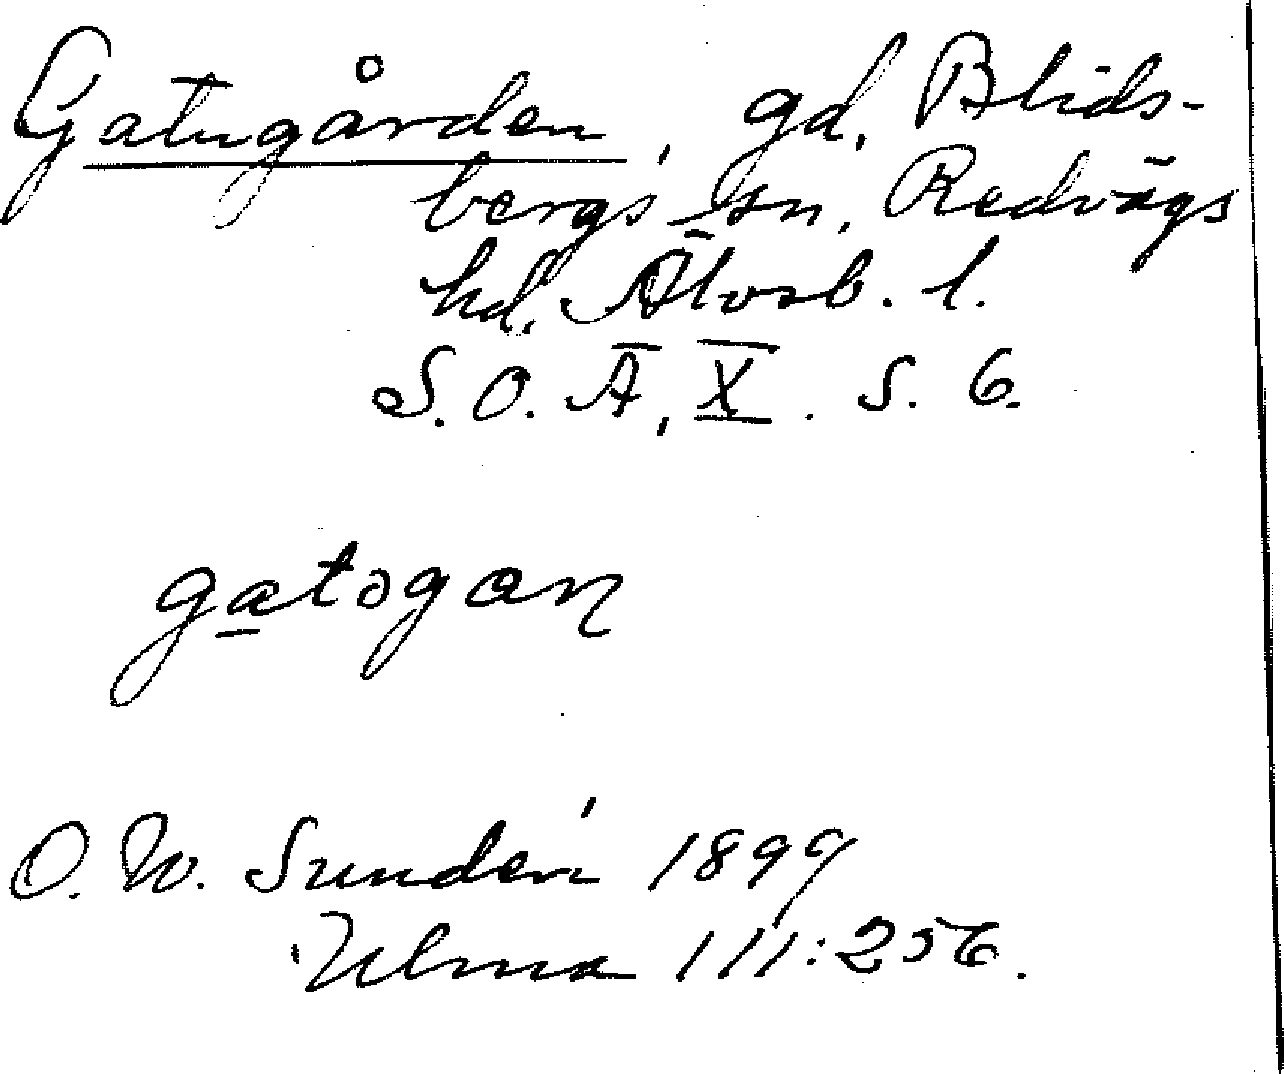 Gatugården, gd, Blids-
bergs sn, Redvägs
hd, Älvsb. l.
S.O.Ä, X. s. 6.
gatogan
O. W. Sundén 1899
Ulma 111:256.